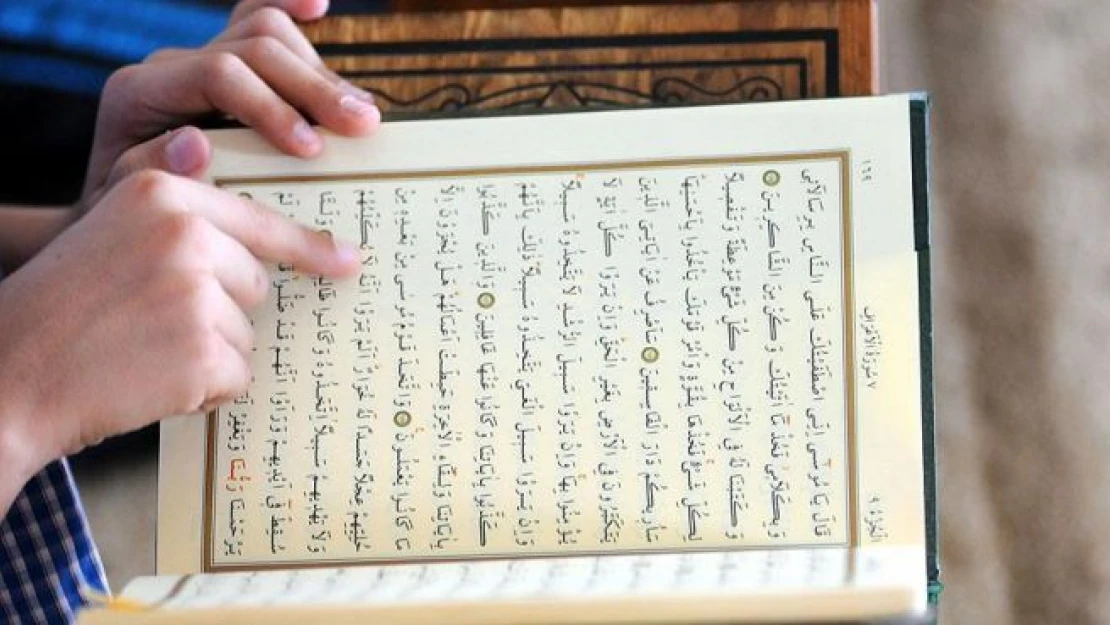 الجزء ٩ ٧ سورة الأعراف ١٦٩
قَالَ يَا مُوسٰٓى اِنِّى اصْطَفَيْتُكَ عَلَى النَّاسِ بِرِسَالَاتٖى
وَبِكَلَامٖى فَخُذْ مَٓا اٰتَيْتُكَ وَكُنْ مِنَ الشَّاكِرٖينَ
وَكَتَبْنَا لَهُ فِى الْاَلْوَاحِ مِنْ كُلِّ شَىْءٍ مَوْعِظَةً وَتَفْصٖيلًا
لِكُلِّ شَىْءٍ فَخُذْهَا بِقُوَّةٍ وَأْمُرْ قَوْمَكَ يَأْخُذُوا بِاَحْسَنِهَا
سَاُرٖيكُمْ دَارَ الْفَاسِقٖينَ سَاَصْرِفُ عَنْ اٰيَاتِىَ الَّذٖينَ
يَتَكَبَّرُونَ فِى الْاَرْضِ بِغَيْرِ الْحَقِّ وَاِنْ يَرَوْا كُلَّ اٰيَةٍ لَا
يُؤْمِنُوا بِهَا وَاِنْ يَرَوْا سَبٖيلَ الرُّشْدِ لَا يَتَّخِذُوهُ سَبٖيلًا
وَاِنْ يَرَوْا سَبٖيلَ الْغَىِّ يَتَّخِذُوهُ سَبٖيلًا ذٰلِكَ بِاَنَّهُمْ
كَذَّبُوا بِاٰيَاتِنَا وَكَانُوا عَنْهَا غَافِلٖينَ وَالَّذٖينَ كَذَّبُوا
بِاٰيَاتِنَا وَلِقَٓاءِ الْاٰخِرَةِ حَبِطَتْ اَعْمَالُهُمْ هَلْ يُجْزَوْنَ اِلَّا
مَا كَانُوا يَعْمَلُونَ وَاتَّخَذَ قَوْمُ مُوسٰى مِنْ بَعْدِهٖ مِنْ
حُلِيِّهِمْ عِجْلًا جَسَدًا لَهُ خُوَارٌ اَلَمْ يَرَوْا اَنَّهُ لَا يُكَلِّمُهُمْ
وَلَا يَهْدٖيهِمْ سَبٖيلًا اِتَّخَذُوهُ وَكَانُوا وَلَمَّا
سُقِطَ فٖٓى اَيْدٖيهِمْ وَرَاَوْا اَنَّهُمْ قَدْ ضَلُّوا لَمْ
يَرْحَمْنَا رَبُّنَا وَيَغْفِرْ